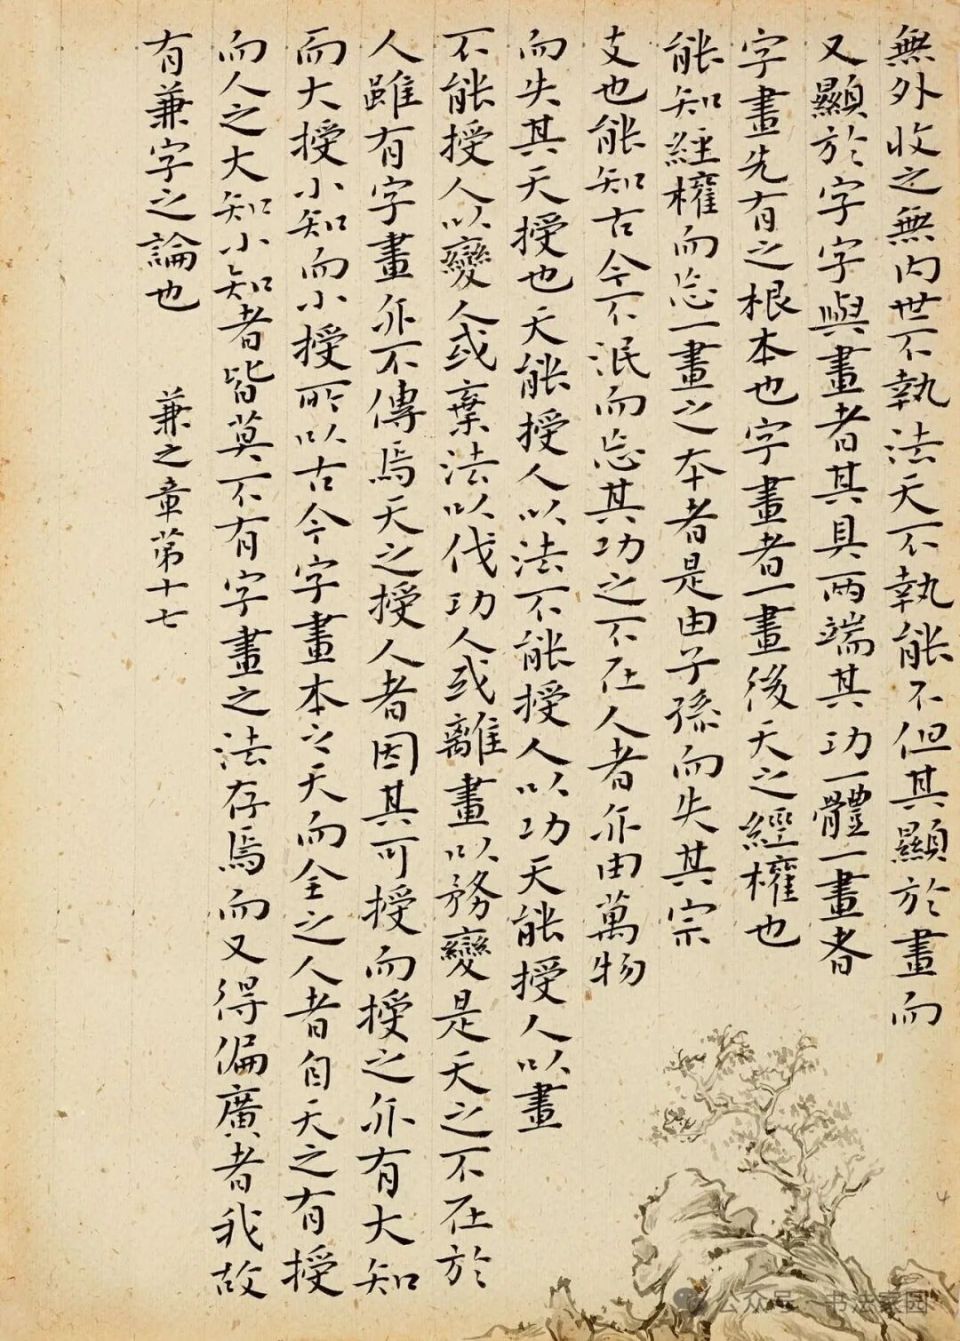 無外收之無內世不執法天不執能不但其顯於畫而
又顯於字字與畫者其具兩端其功一體一畫者
字畫先有之根本也字畫者一畫後天之經權也
能知經權而忘一畫之本者是由子孫而失其宗
支也能知古今不泯而忘其功之不在人者亦由萬物
而失其天授也天能授人以法不能授人以功天能授人以畫
不能授人以變人或棄法以伐功人或離畫以務變是天之不在於
人雖有字畫亦不傳焉天之授人者因其可授而授之亦有大知
而大授小知而小授所以古今字畫本之天而全之人者自天之有授
而人之大知小知者皆莫不有字畫之法存焉而又得偏廣者我故
有兼字之論也
兼之章第十七
公众号·书法家园